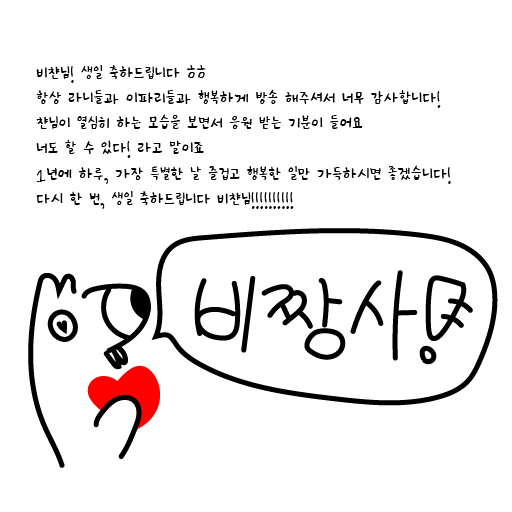 비챤님! 생일 축하드립니다 ㅎㅎ
항상 라니들과 이파리들과 행복하게 방송 해주셔서 너무 감사합니다!
챤님이 열심히 하는 모습을 보면서 응원 받는 기분이 들어요
너도 할 수 있다! 라고 말이죠
1년에 하루, 가장 특별한 날 즐겁고 행복한 일만 가득하시면 좋겠습니다!
다시 한 번, 생일 축하드립니다 비챤님!!!!!!!!!!
비짱사